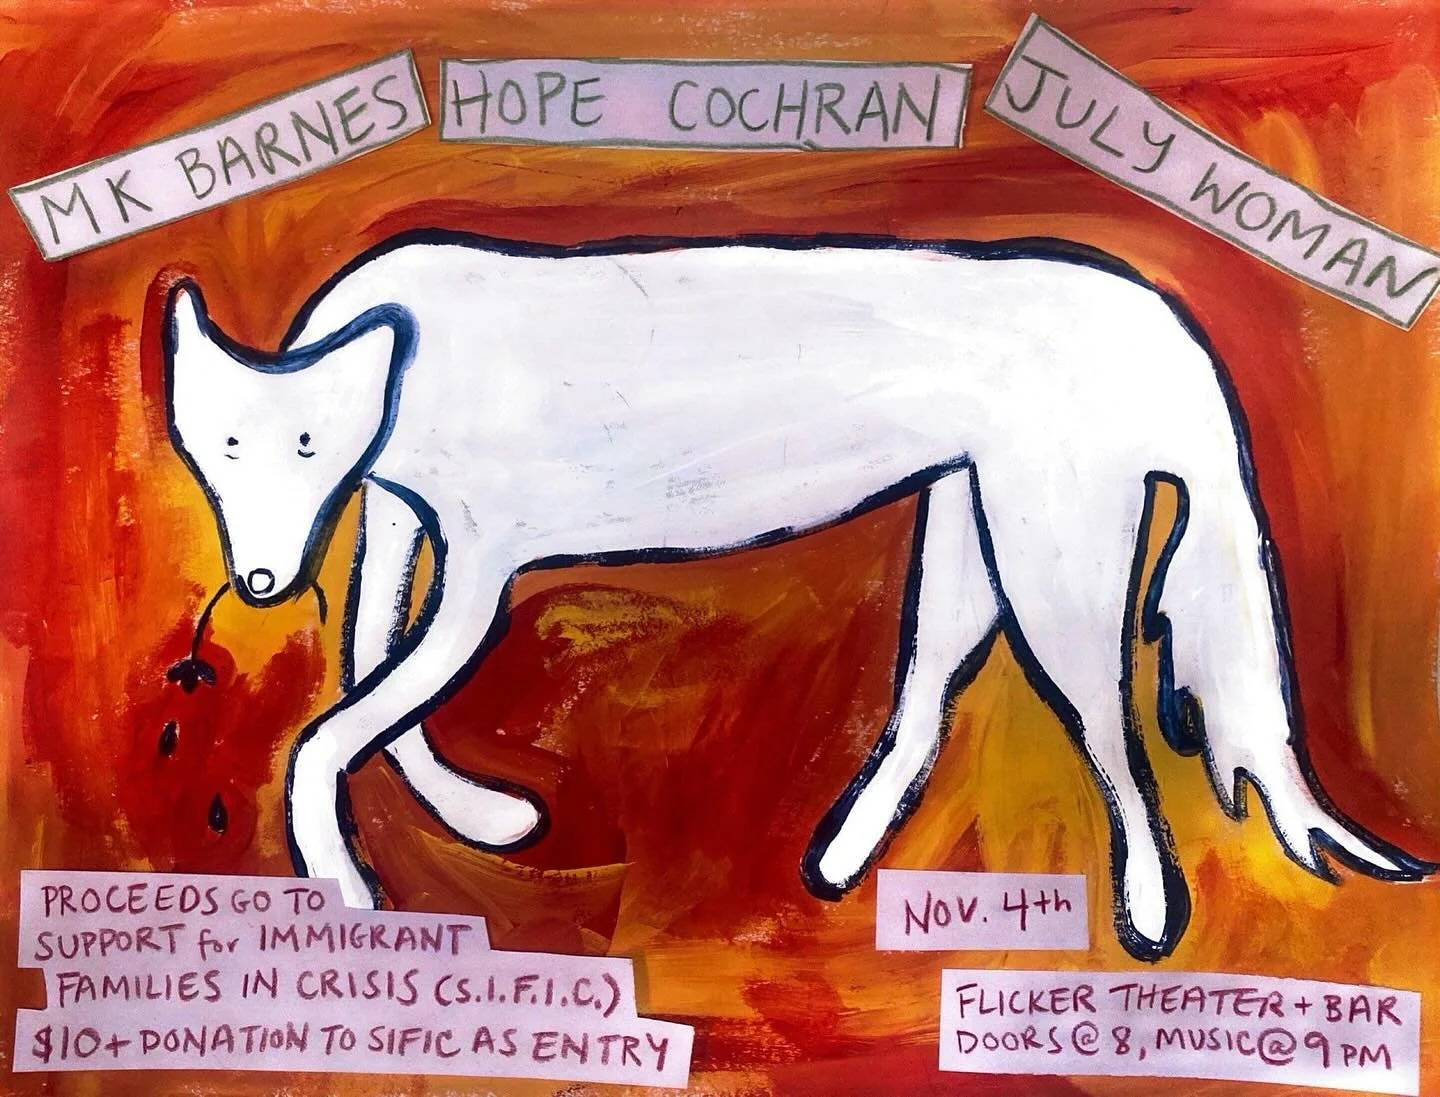 MK BARNES
HOPE COCHRAN
JULY WOMAN
PROCEEDS GO TO
SUPPORT for IMMIGRANT
FAMILIES IN CRISIS (S.I.F.I.C.)
$10+ DONATION TO SIFIC AS ENTRY
NOV. 4th
FLICKER THEATER + BAR
DOORS @ 8, MUSIC @ 9 PM